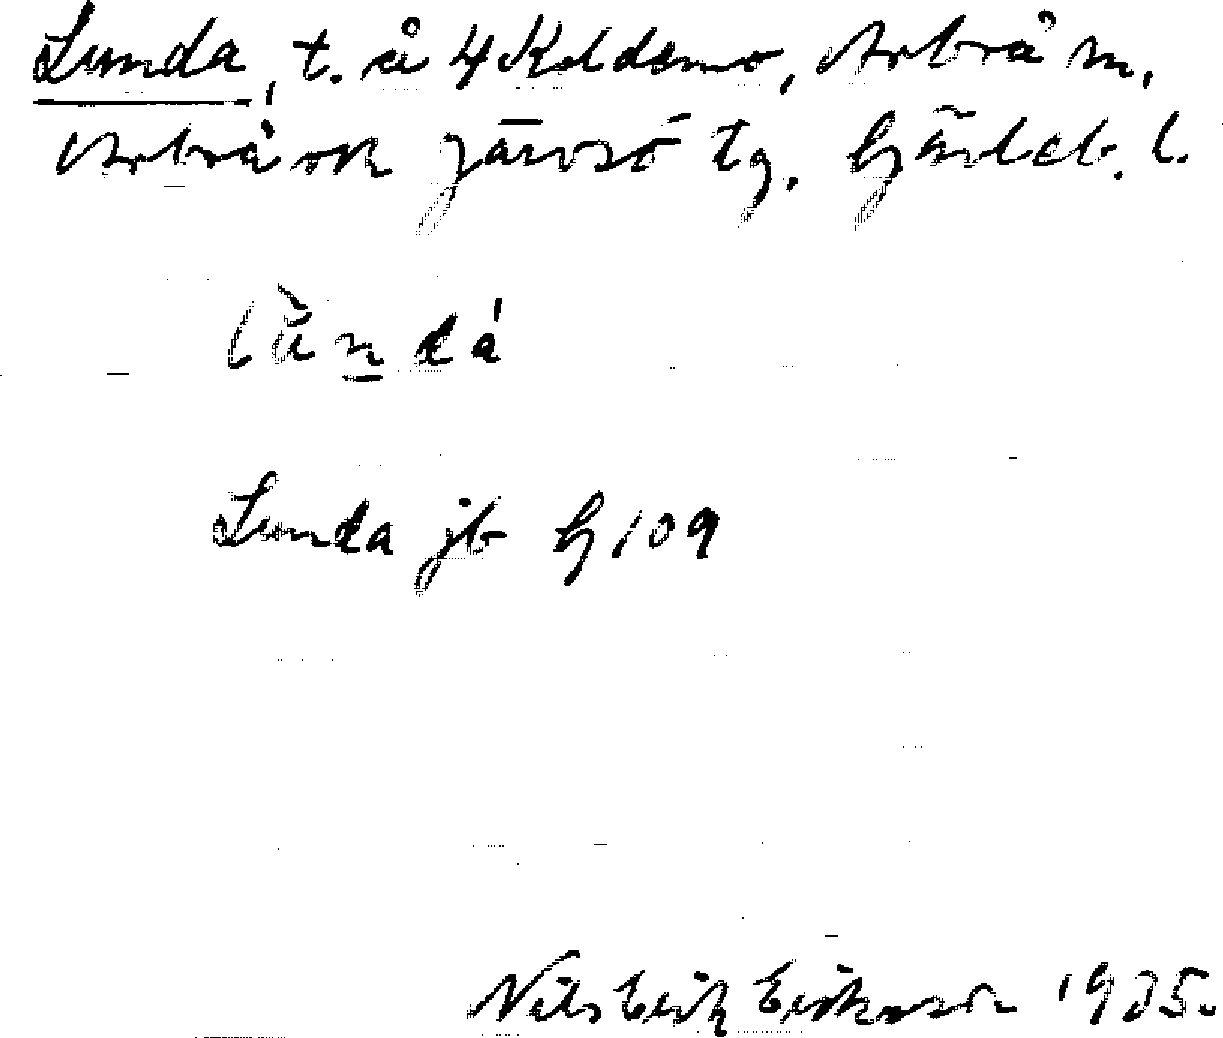 Lunda, t. å 4 Koldemo, Arbrå sn,
Arbrå ok Järvsö tg. Gävleb. l.
lùndá
Lunda jb G 109
Nils Erik Eriksson 1935.